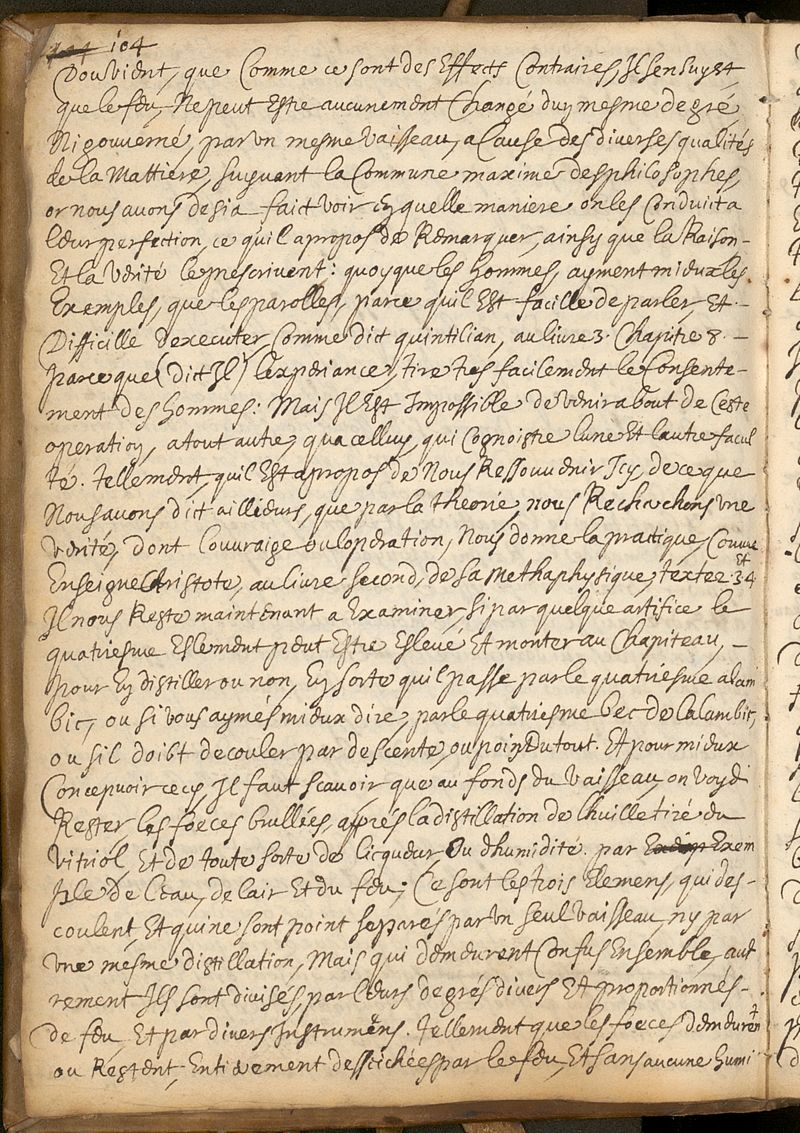 104 104
Dou Vient, que Comme ce sont des Effects Contraires, Il sensuyst
que le feu, Ne peut Estre aucunement Changé du mesme degré,
Ni gouverné, par un mesme Vaisseau, a Cause des diverses qualités
de la Mattiere, suyuant la Commune maxime des philosophes,
or nous auons desia faict voir Ey quelle maniere on les Conduict a
leur perfection, ce quil apropos de Remarquer, ainsy que la Raison -
Et la Verité le prescrivent: quoyque les hommes, ayment mieux les
Exemples, que les parolles, parce quil Est facille de parler, Et -
Difficille dexecuter Comme dict quintilian, au livre 3. Chapitre 8. -
parce que (dict Il) lexperiance, tire tres facilement le Consente-
ment des hommes: Mais Il Est Impossible de Venir a bout de Ceste
operation, a tout autre, qua celluy, qui Cognoistre lune Et lautre facul
té. Tellement, quil Est apropos de Nous Ressouuenir Icy, de ce que
Nous auons dict ailliers, que par la theorie, nous Recherchons une
Verité, dont l'ouuraige ou loperation, Nous donne la practique, Comme
Enseigne Aristote, au livre second, de sa Methaphysique, texte 2. Et 34
Il nous Reste maintenant a Examiner, si par quelque artifice le
quatriesme Eslement peut Estre Eslevé Et monter au Chapiteau, -
pour Ey distiller ou non, Ey sorte quil passe par le quatriesme alam
bic, ou si vous aymés mieux dire, par le quatriesme bec de lalambic,
ou sil doibt decouler par descente, ou point Du tout. Et pour mieux
Concepuoir cecy, Il faut scauoir que au fonds du Vaisseau, on Voyd
Rester les foeces brullées, apprés la distillation de lhuille tiré du
Vitriol, Et de toute sorte de licqueur Ou dhumidité. par Exem
ple de l'eau, de lair Et du feu; Ce sont les trois Elemens, qui des-
coulent, Et qui ne sont point separés par un seul Vaisseau, ny par
une mesme distillation, Mais qui demeurent Confus Ensemble, aut
rement Ils sont divisés par leurs degrés divers Et proportionnés -
de feu, Et par divers Instrumens. Tellement que les foeces demeurent
ou Restent, Entierement dessichées par le feu, Et sans aucune humi